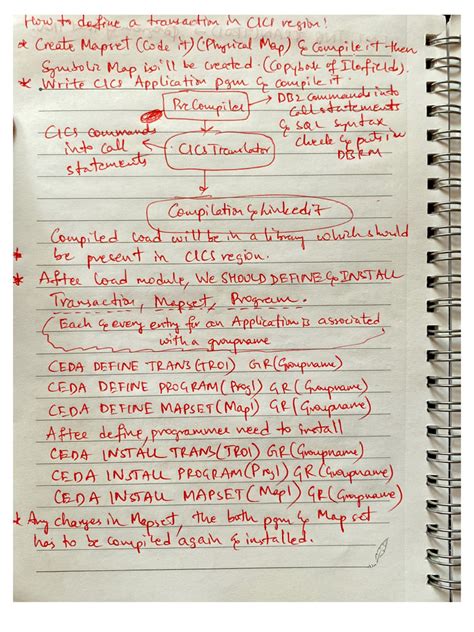 How to define a transaction in CICS region?
* Create Mapset (Code it) (Physical Map) & compile it then
Symbolic Map will be created. (Copybook of I/O fields).
* Write CICS Application pgm & compile it.
PreCompiler → DB2 commands into
call statements
& SQL syntax
check & puts in
DBRM
CICS commands
into call
statements
← CICS Translator
Compilation & Linkedit
Compiled Load will be in a library which should
be present in CICS region.
* After Load module, We SHOULD DEFINE & INSTALL
Transaction, Mapset, Program.
Each & every entry for an Application is associated
with a groupname
CEDA DEFINE TRANS(TR01) GR(Groupname)
CEDA DEFINE PROGRAM(Prg1) GR(Groupname)
CEDA DEFINE MAPSET(Map1) GR(Groupname)
After define, programmer need to install
CEDA INSTALL TRANS(TR01) GR(Groupname)
CEDA INSTALL PROGRAM(Prg1) GR(Groupname)
CEDA INSTALL MAPSET(Map1) GR(Groupname)
* Any changes in Mapset, the both pgm & Map set
has to be compiled again & installed.